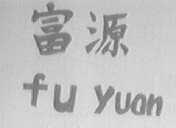 富源
fu yuan